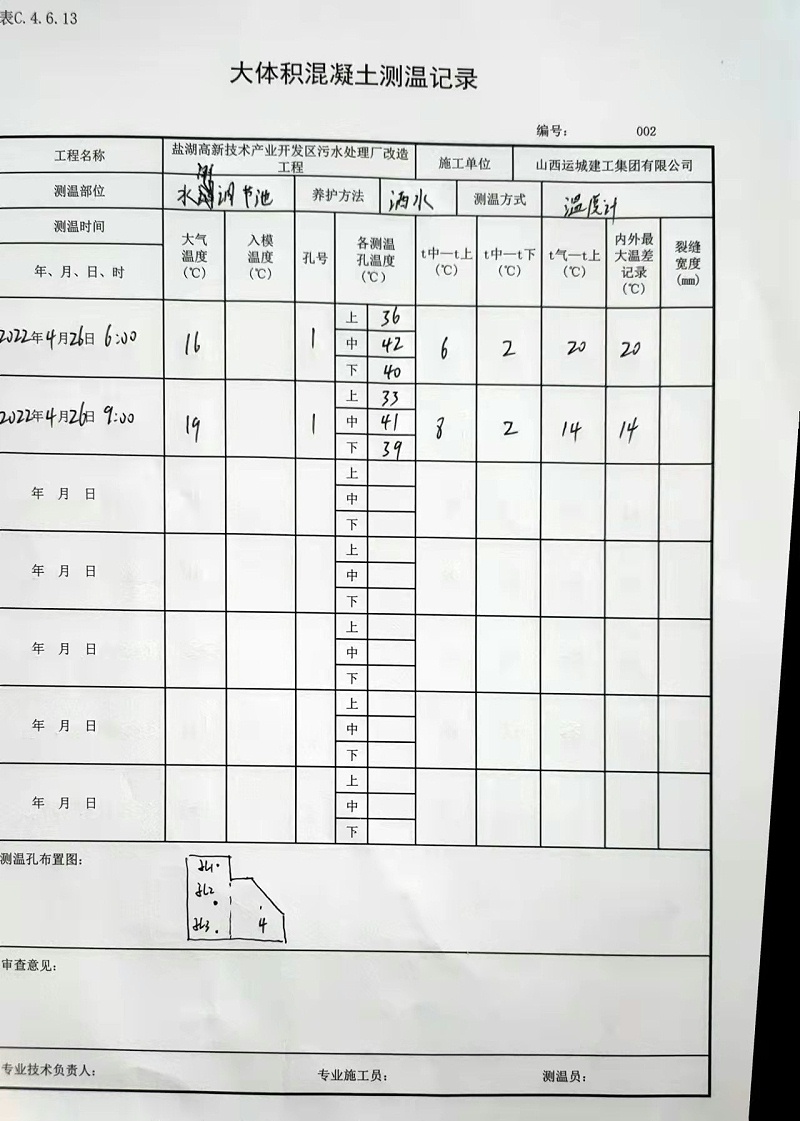 表C.4.6.13
大体积混凝土测温记录
编号： 002
工程名称 盐湖高新技术产业开发区污水处理厂改造工程 施工单位 山西运城建工集团有限公司
测温部位 水 调节池 养护方法 洒水 测温方式 温度计
测温时间 大气温度(℃) 入模温度(℃) 孔号 各测温孔温度(℃) t中—t上(℃) t中—t下(℃) t气—t上(℃) 内外最大温差记录(℃) 裂缝宽度(mm)
年、月、日、时
2022年4月26日 6:00 16 1 上 36 6 2 20 20
中 42
下 40
2022年4月26日 9:00 19 1 上 33 8 2 14 14
中 41
下 39
年 月 日 上
中
下
年 月 日 上
中
下
年 月 日 上
中
下
年 月 日 上
中
下
年 月 日 上
中
下
测温孔布置图：
孔1
孔2
孔3 4
审查意见：
专业技术负责人： 专业施工员： 测温员：